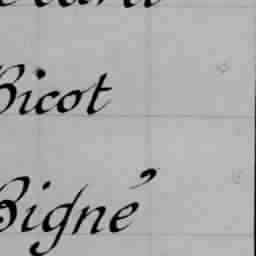 Bicot
Bigné